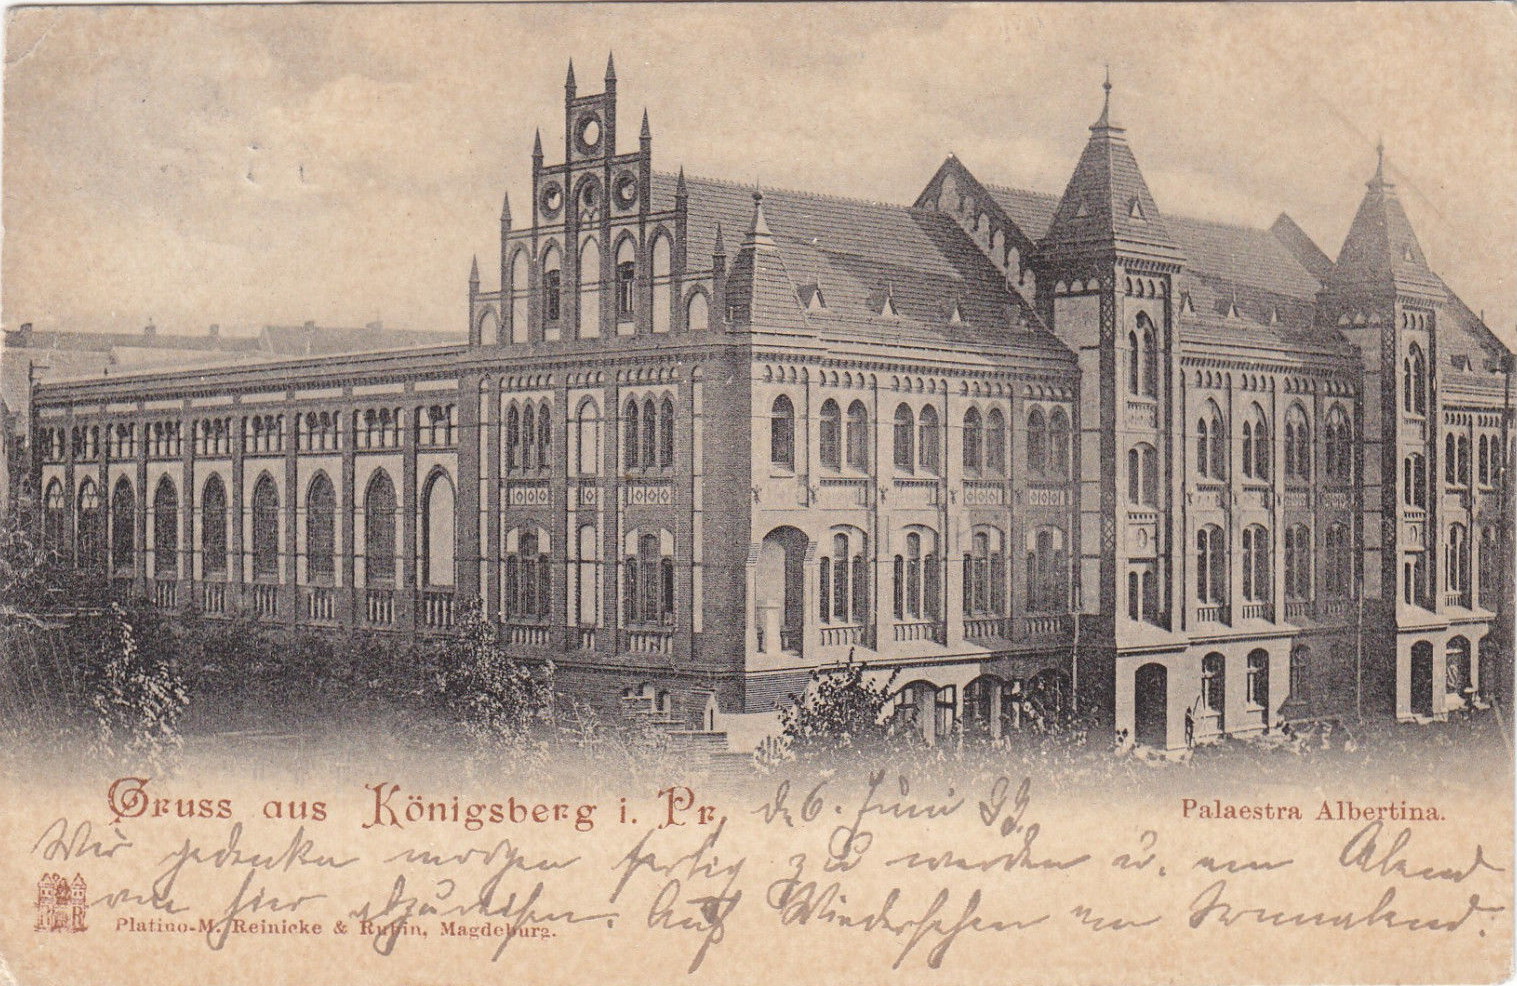 Gruss aus Königsberg i. Pr. d. 6. Juni 99.
Palaestra Albertina.
Wir gedenken morgen fertig zu werden u. am Abend
von hier abzureisen. Auf Wiedersehen am Sonnabend.
Platino-M. Reinicke & Rubin, Magdeburg.